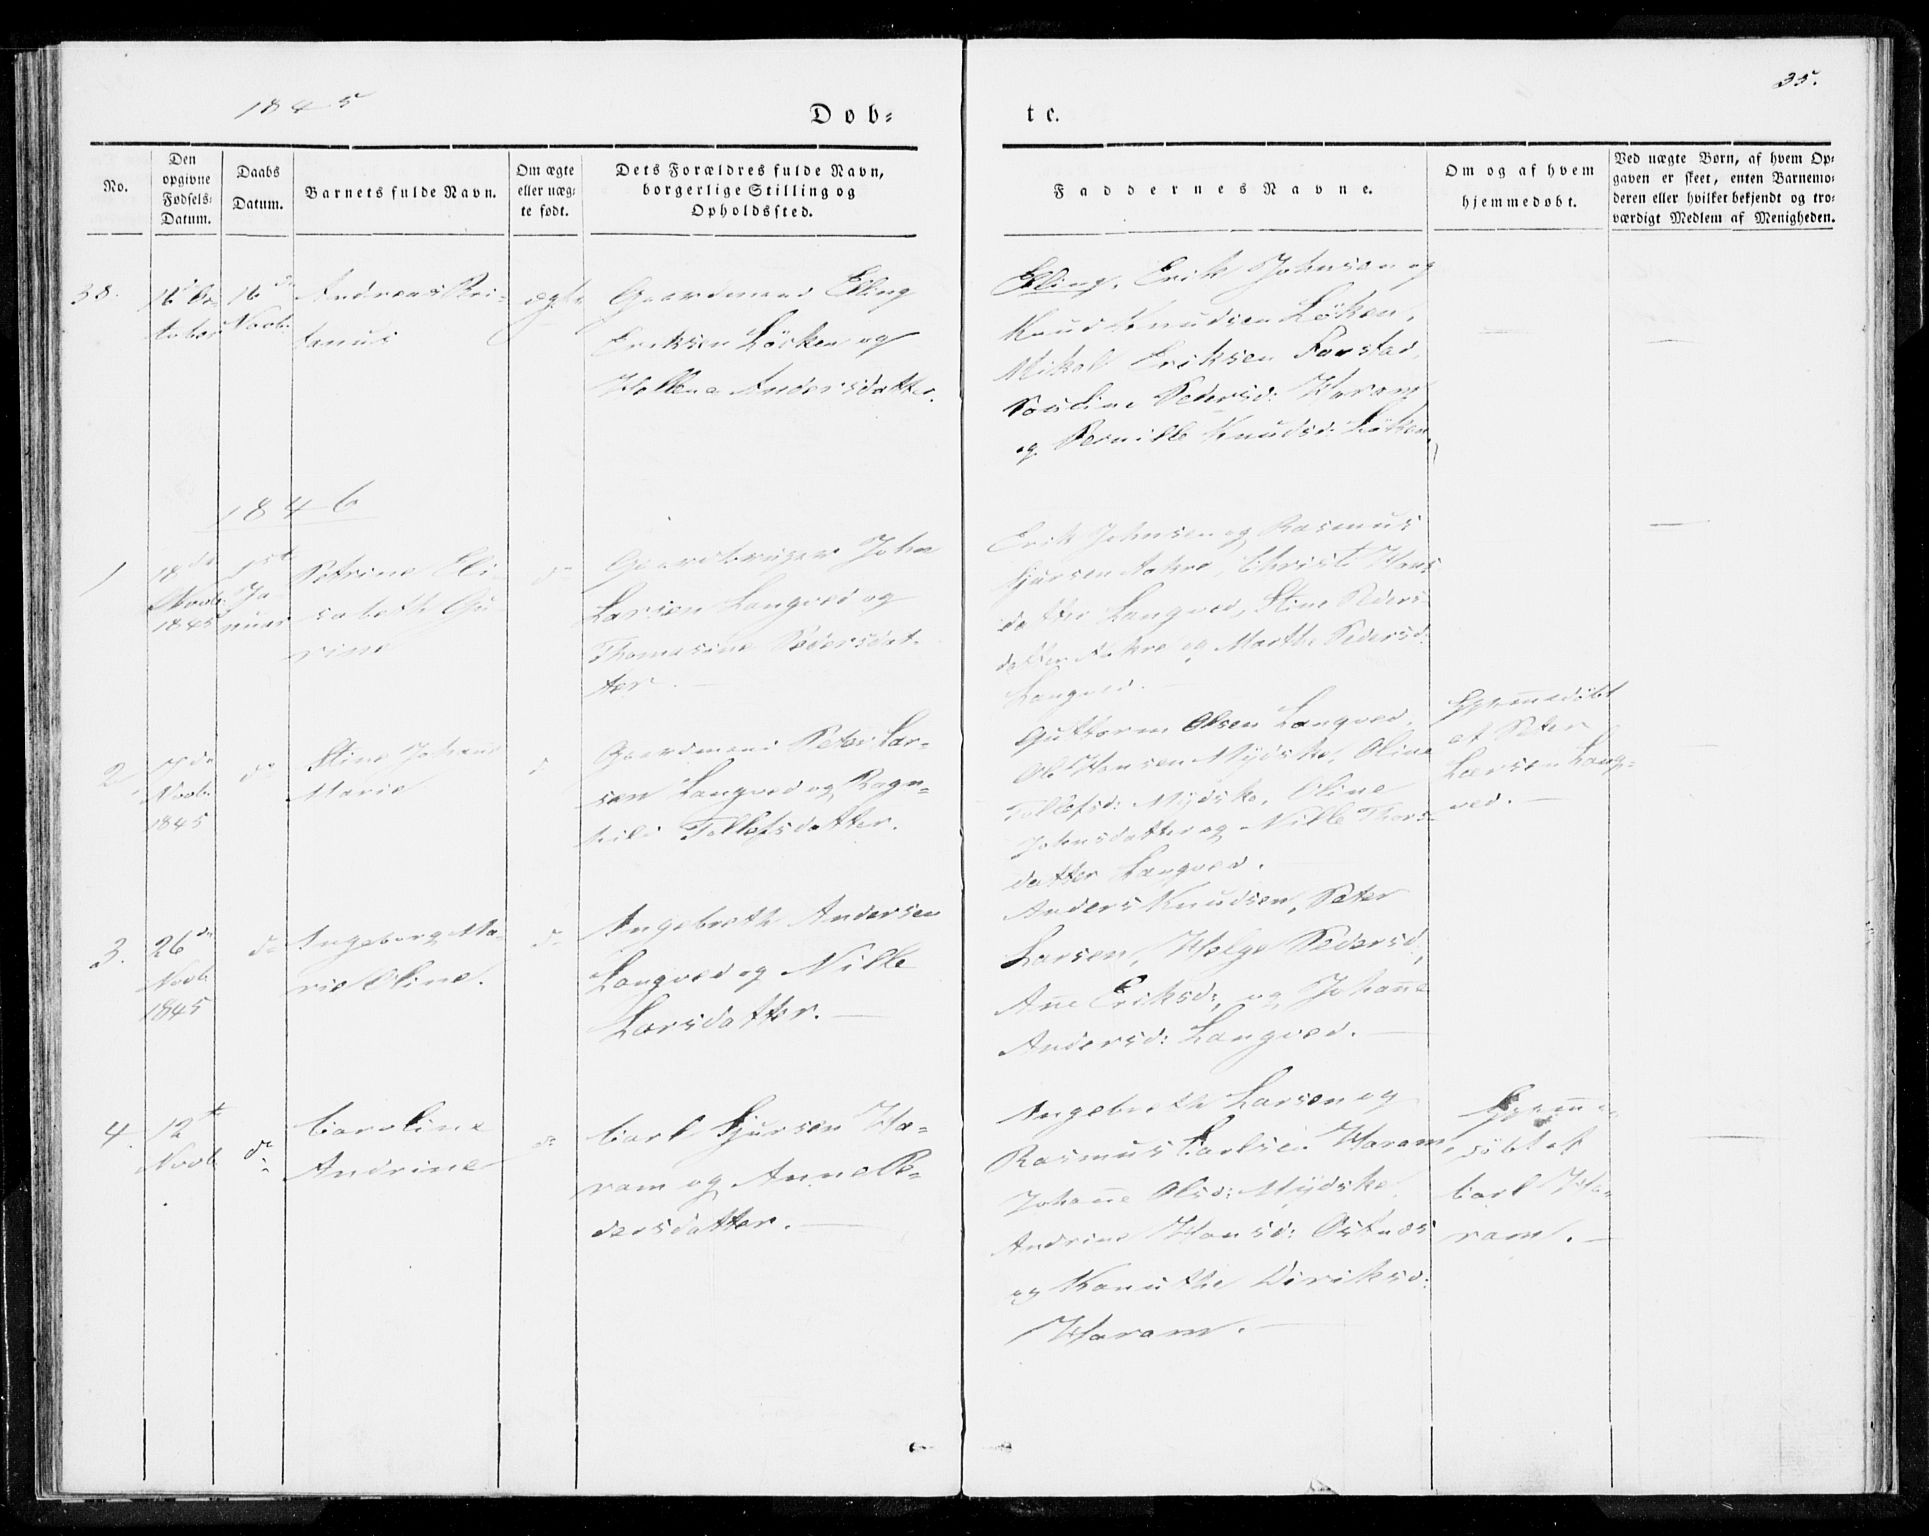 1845
Døb=
te.
35.
No.
Den
opgivne
Fødsels=
Datum.
Daabs
Datum.
Barnets fulde Navn.
Om ægte
eller uæg=
te født.
Dets Forældres fulde Navn,
borgerlige Stilling og
Opholdssted.
Faddernes Navne.
Om og af hvem
hjemmedøbt.
Ved uægte Børn, af hvem Op=
gaven er skeet, enten Barnemo=
deren eller hvilket bekjendt og tro=
værdigt Medlem af Menigheden.
38.
16de Oc
tober
16de
Novb.
Andreas
tanus
ægte
Gaardmand Elling
Eriksen Löken og
Hellene Andersdatter.
Elling, Erik Johnsen og
Knud Knudsen Löken,
Mikal Eriksen Farstad,
Pauline Pedersd: Haram
og Pernille Knudsd: Löken
1846
1
18de
Novb.
1845
1st
Ja
nuar
Petrine Eli
sabeth Gu
rine
do
Gaardbruger John
Larsen Langved og
Thomasine Pedersdat
ter. —
Erik Johnsen og Rasmus
Sjursen Aakre, Christi Hans
datter Langved, Stine Peders
datter Aakre og Marthe Pedersd:
Langved. —
2.
7de
Novb.
1845
do
Stine Johanne
Marie
d
Gaardmand Peter Lar=
sen Langved og Ragn=
hild Tollefsdatter.
Guttorm Olsen Langved,
Ole Hansen Mydske, Oline
Tollefsd: Mydske, Oline
Johnsdatter og Nille Thors
datter Langved.
Hjemmedöbt
af Peter
Larsen Lang=
ved. —
3.
26de
Novb
1845
do
Ingeborg Ma=
rie Oline.
do
Ingebreth Andersen
Langved og Nille
Larsdatter. —
Anders Knudsen, Peter
Larsen, Helge Pedersd:,
Ane Eriksd:, og Johanne
Andersd: Langved. —
4.
12te
Novb
do
Caroline
Andrine
do
Carl Sjursen Ha=
ram og Anne Pe=
dersdatter. —
Ingebreth Larsen og
Rasmus Carlsen Haram,
Johanne Olsd: Mydske,
Andrine Hansd: Ostnæs
og Kanuthe Diriksd:
Haram. —
Hjemme
döbt af
Carl Ha=
ram. —